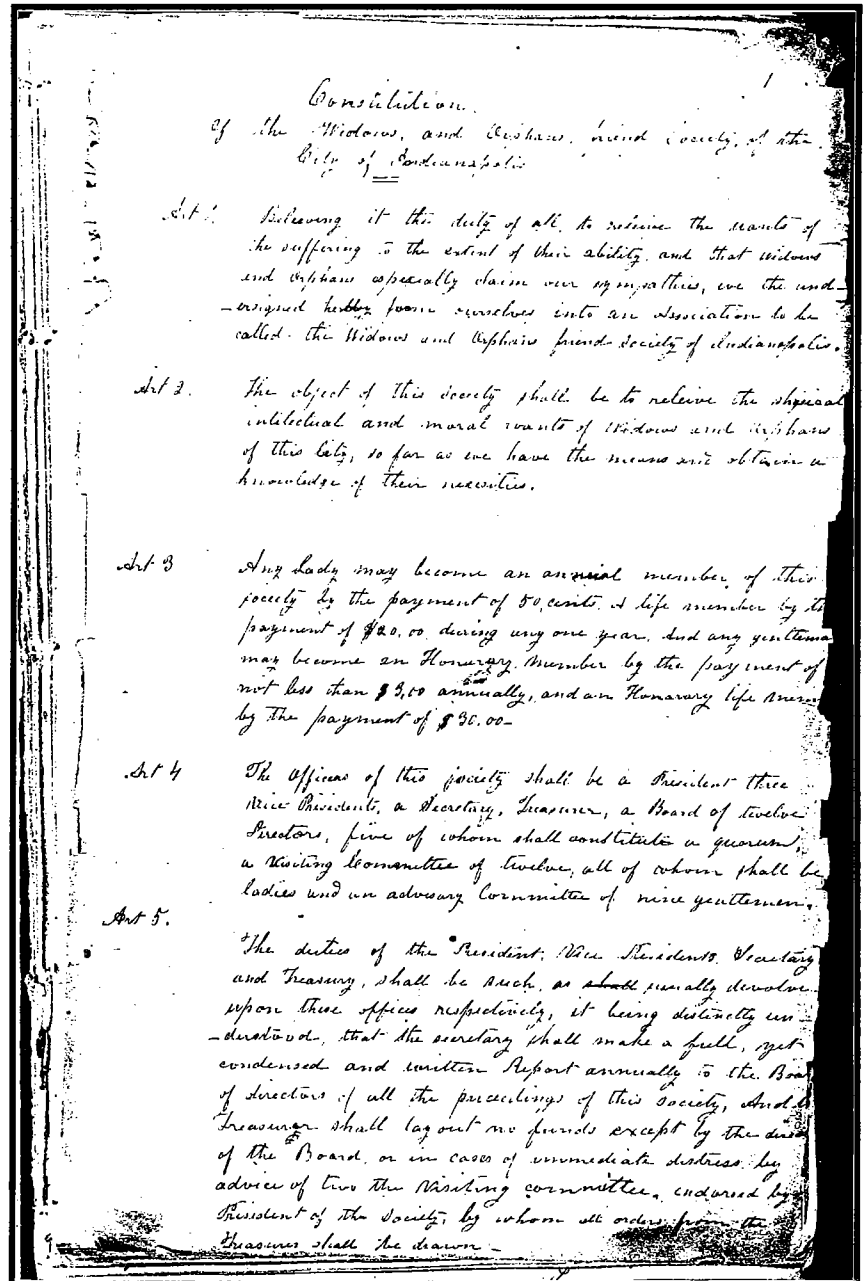 1
Constitution.
Of the Widows, and Orphans, friend Society, of the
City of Indianapolis
Art 1. Believing it the duty of all, to releive the wants of
the suffering to the extent of their ability, and that widows
and Orphans especially claim our sympathies, we the und-
-ersigned herby form ourselves into an Association to be
called the Widows and Orphans friend society of Indianapolis.
Art 2. The object of this society shall be to releive the physical
intilectual and moral wants of Widows and Orphans
of this City, so far as we have the means and obtain a
knowledge of their necesities.
Art 3 Any Lady may become an annual member, of this
society by the payment of 50, cents. A life member by the
payment of $20.00. during any one year. And any gentlema
may become an Honorary member by the payment of
not less than $3,00 annually, and an Honarary life mem
by the payment of $30.00-
Art 4 The officers of this society shall be a President three
Vice Presidents, a Secretary, Treasurer, a Board of twelve
Directors, five of whom shall constitute a quorum,
a Visiting Committee of twelve, all of whom shall be
ladies and an advisory Committee of nine gentlemen.
Art 5.
The duties of the President, Vice Presidents, Secretary
and Treasury, shall be such, as shall usually devolve
upon these offices respectively, it being distinctly un-
-derstood, that the secretary shall make a full, yet
condensed and written Report annually to the Boar
of directors of all the proceedings of this society, And
Treasurer shall lay out no funds except by the direc
of the Board, or in cases of immediate distress, by
advice of two the Visiting committee, indorsed by
President of the Society, by whom all orders from the
Treasures shall be drawn-